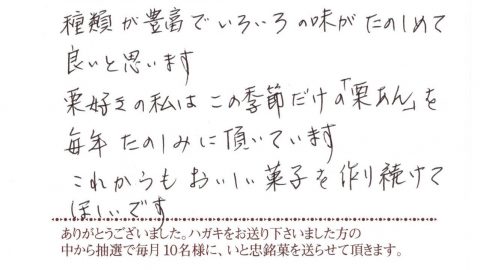 種類が豊富でいろいろの味がたのしめて
良いと思います
栗好きの私はこの季節だけの「栗あん」を
毎年たのしみに頂いています
これからもおいしい菓子を作り続けて
ほしいです
ありがとうございました。ハガキをお送り下さいました方の
中から抽選で毎月10名様に、いと忠銘菓を送らせて頂きます。